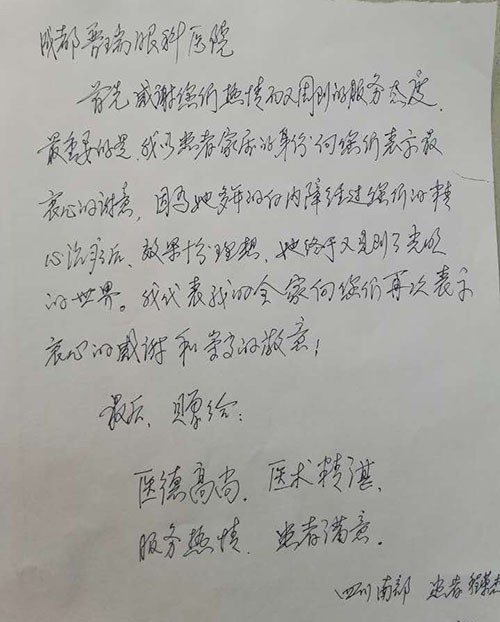 成都普瑞眼科医院
首先感谢您们热情而又周到的服务态度,
最重要的是,我以患者家属的身份向您们表示最
衷心的谢意,因为她多年的白内障经过您们的精
心治疗后,效果十分理想,她终于又见到了光明
的世界。我代表我的全家向您们再次表示
衷心的感谢和崇高的敬意!
最后,赠给:
医德高尚,医术精湛,
服务热情,患者满意。
四川南部 患者程